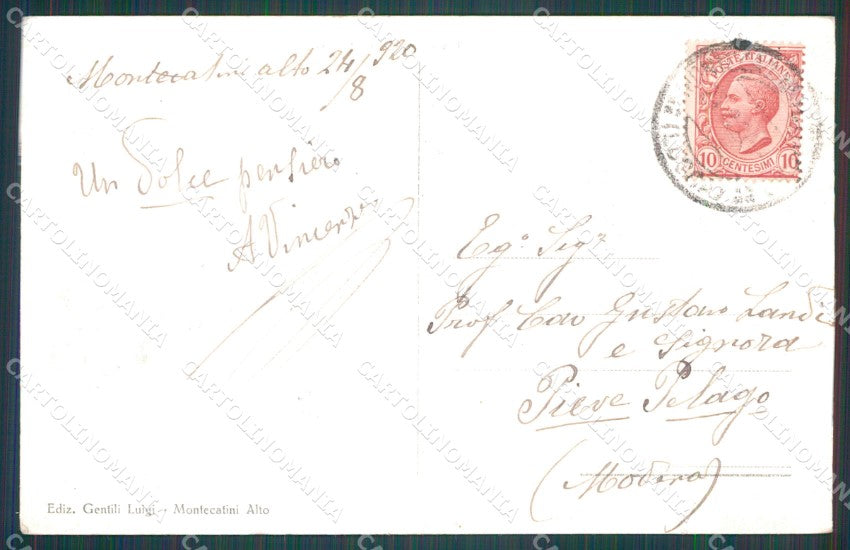 Montecatini alto 24/8 920
Un Dolce pensiero
A Vincenzo
POSTE ITALIANE
10 CENTESIMI 10
Eg.º Sigr
Prof Cav Gustavo Landi
e Signora
Pieve Pelago
(Modena)
Ediz. Gentili Luigi - Montecatini Alto
CARTOLINOMANIA